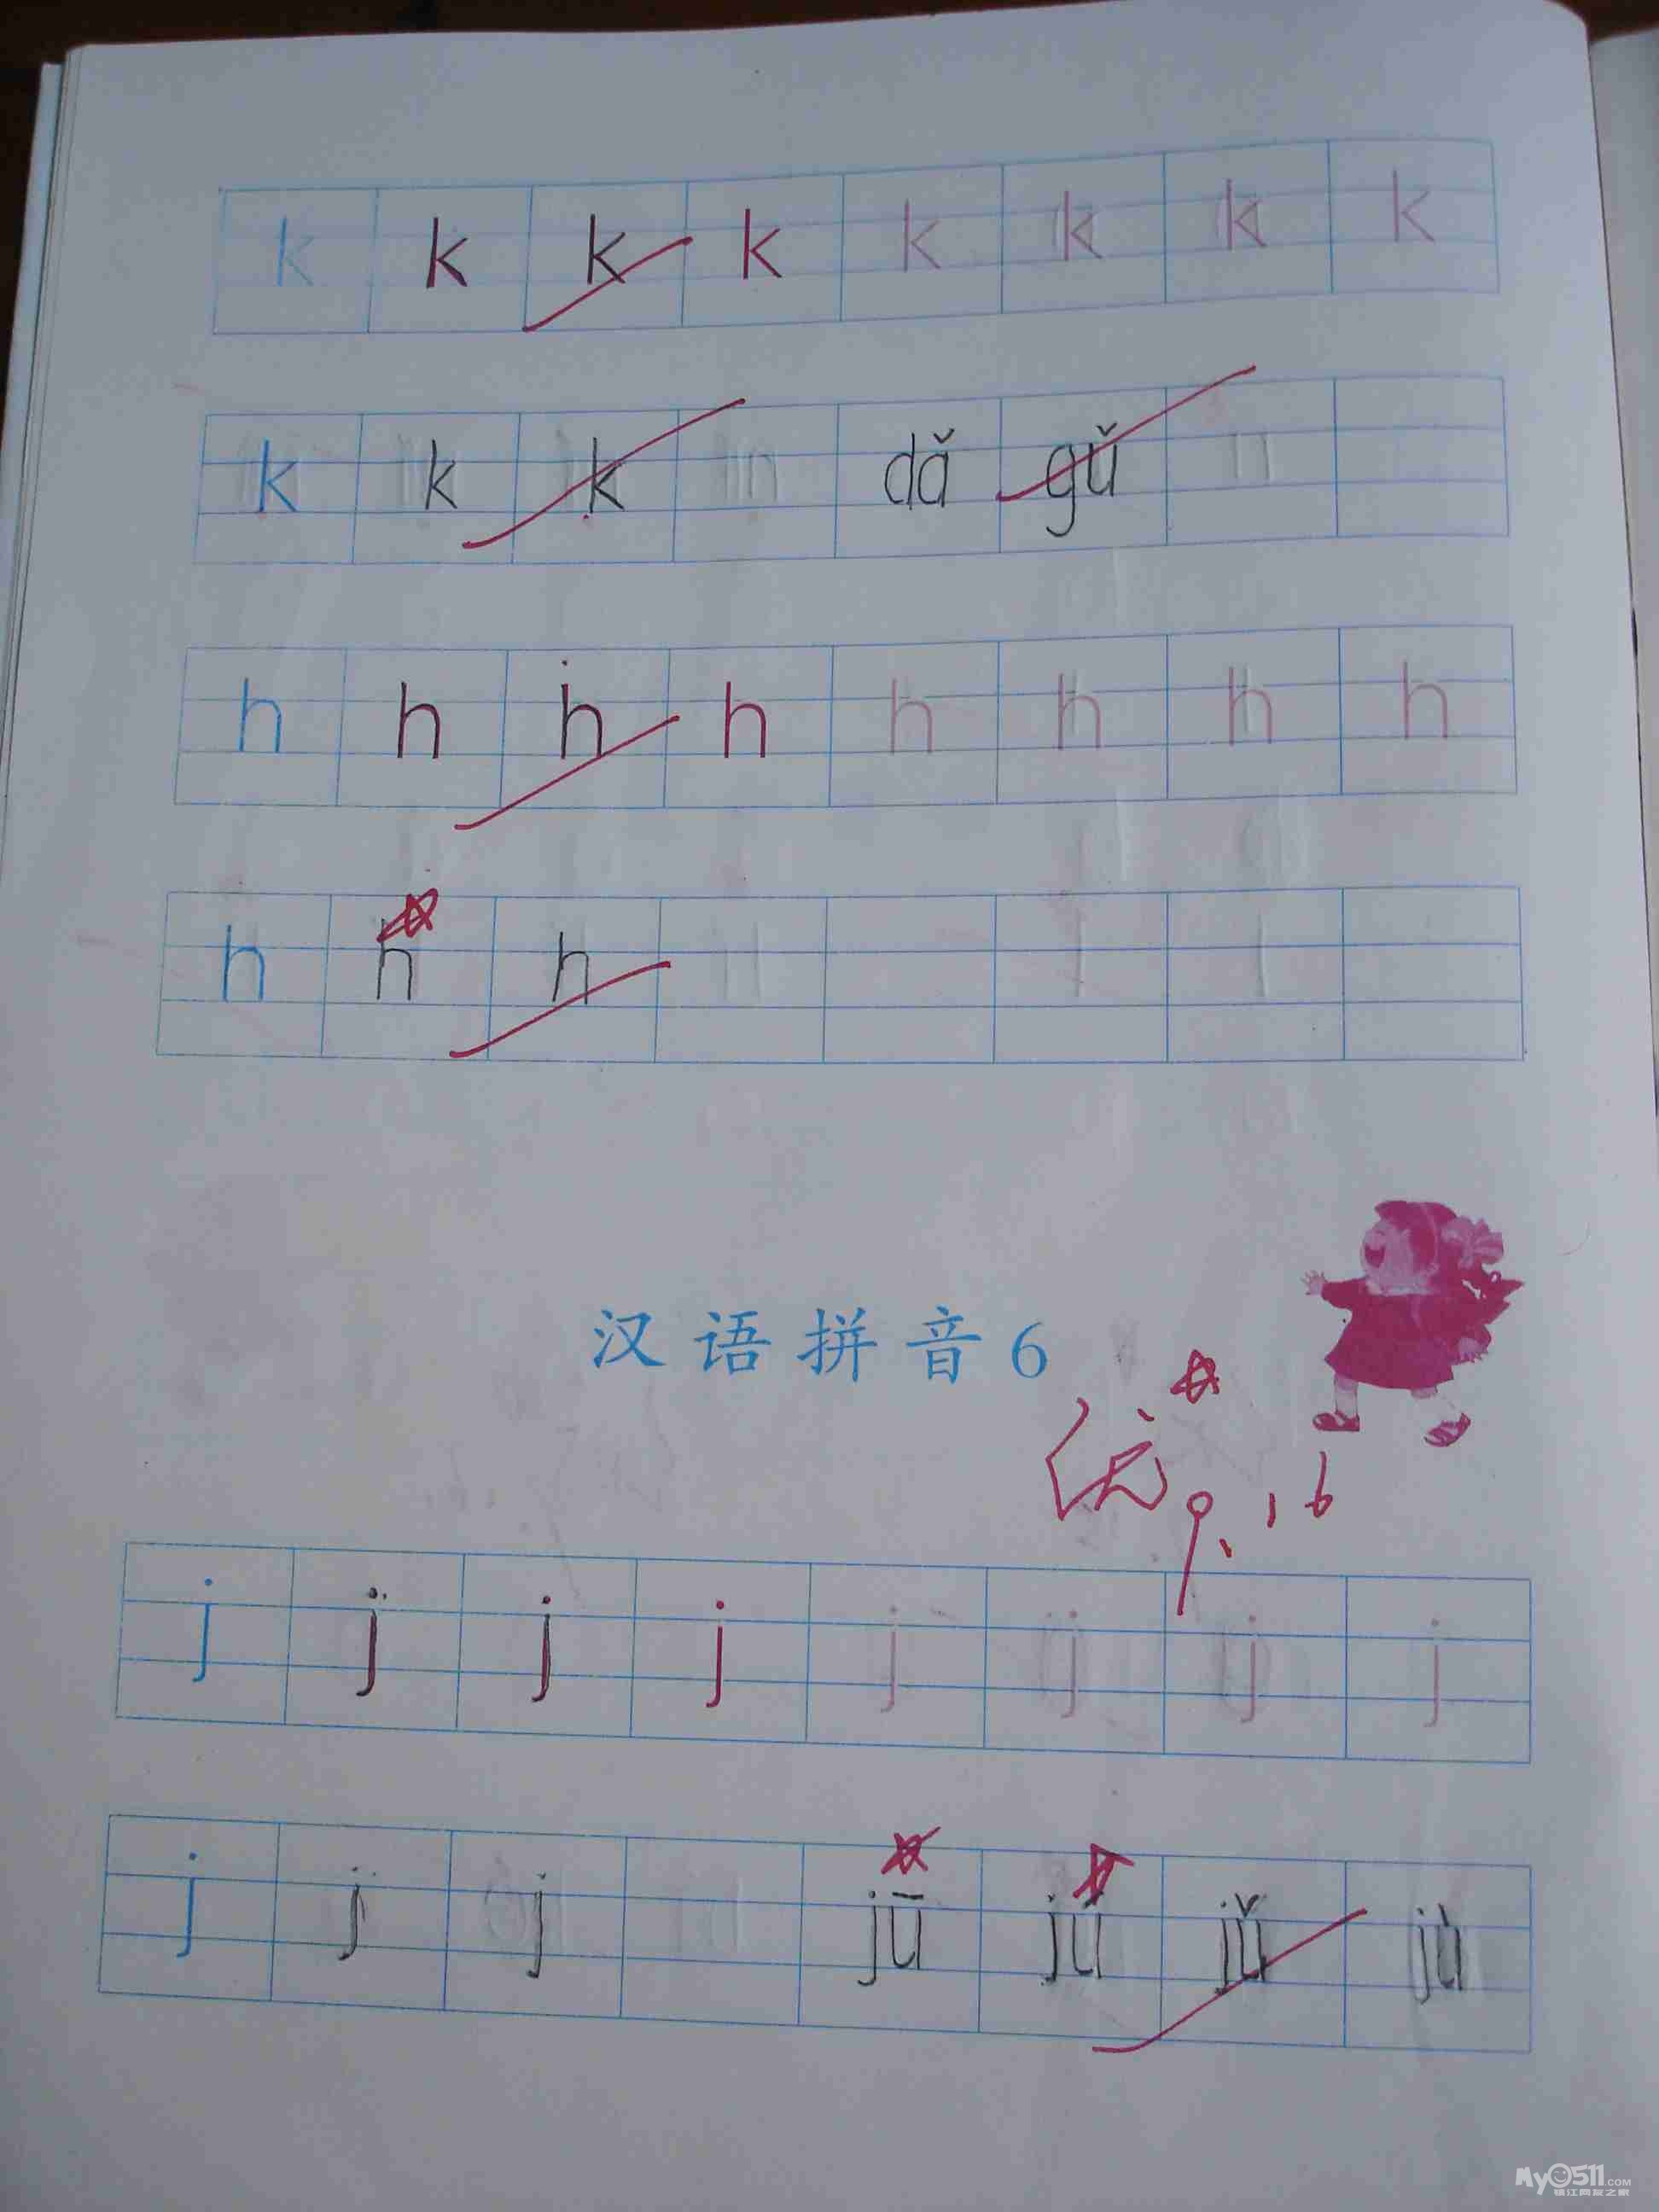 k k k k k k k k
k k k dǎ gǔ
h h h h h h h h
h h h
汉语拼音6
9.16
j j j j j j j j
j j j jū jú jǔ jù
My0511.COM
镇江网友之家